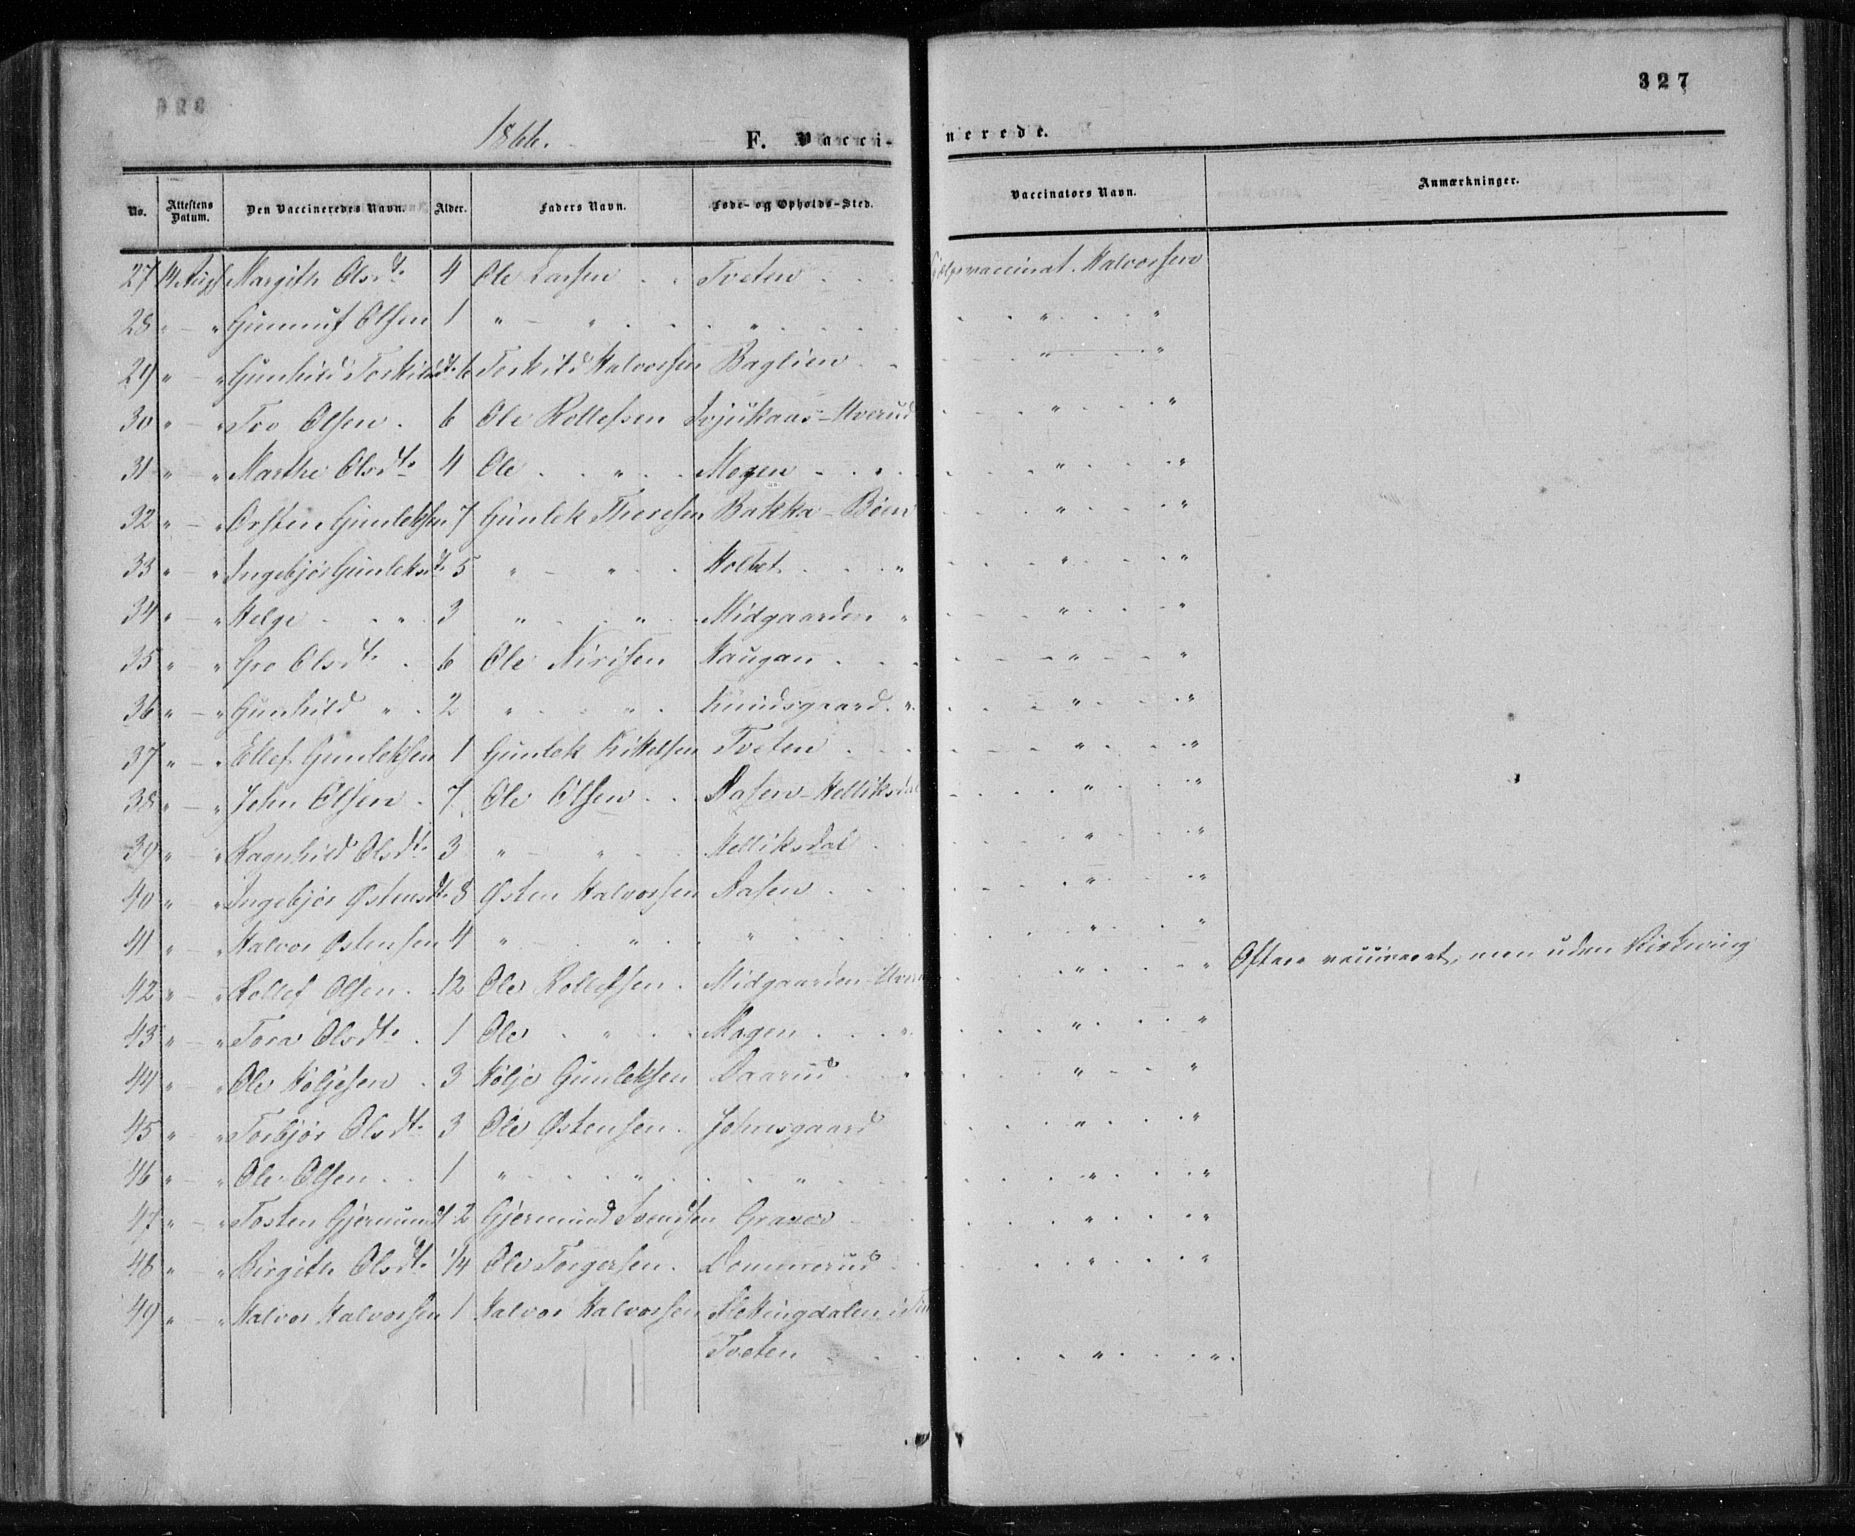 327
1866.
F. Vaccinerede.
No. Attestens Datum. Den Vaccineredes Navn. Alder. Faders Navn. Føde- og Opholds-Sted. Vaccinators Navn. Anmærkninger.
27 14 Aug Margith Olsdtr 4 Ole Larsen Tveten Hjelpevaccinat. Halvorsen
28 " - " Gunnuf Olsen 1 " - " " " "
29 " - " Gunhild Torkildsdtr 6 Torkild Halvorsen Baglien " "
30 " - " Tov Olsen 6 Ole Rollefsen Uverud " "
31 " - " Marthe Olsdtr 4 Ole " Mogen " "
32 " - " Orsten Gunleksen 7 Gunlek Thoresen Bakka - Bøen " "
33 " - " Ingebjør Gunleksdtr 5 " - " Holtet " " "
34 " - " Helge " 3 " " Midgaarden " " "
35 " - " Gro Olsdtr 6 Ole Nirisen Haugan " "
36 " - " Gunhild " 2 " " Kundsgaard " " "
37 " - " Ellef Gunleksen 1 Gunlek Kittelsen Tveten " "
38 " - " John Olsen 7 Ole Olsen Aasen - Helliksdal " "
39 " - " Ragnhild Olsdtr 3 " - " Helliksdal " "
40 " - " Ingebjør Østensdtr 8 Østen Halvorsen Aasen " "
41 " - " Halvor Østensen 4 " - " " " "
42 " - " Rollef Olsen 12 Ole Rollefsen Midgaarden - " " Oftere vaccineret, men uden Virkning
43 " - " Tora Olsdtr 1 Ole " Mogen " " "
44 " - " Ole Høljesen 3 Hølje Gunleksen Daarud " " "
45 " - " Torbjør Olsdtr 3 Ole Østensen Johnsgaard " "
46 " - " Ole Olsen 1 " " " " "
47 " - " Tosten Gjermunds 1/2 Gjermund Svendsen Graver " "
48 " - " Birgith Olsdtr 1/4 Ole Torgersen Dommerud " "
49 " - " Halvor Halvorsen 1 Halvor Halvorsen
Tveten " "